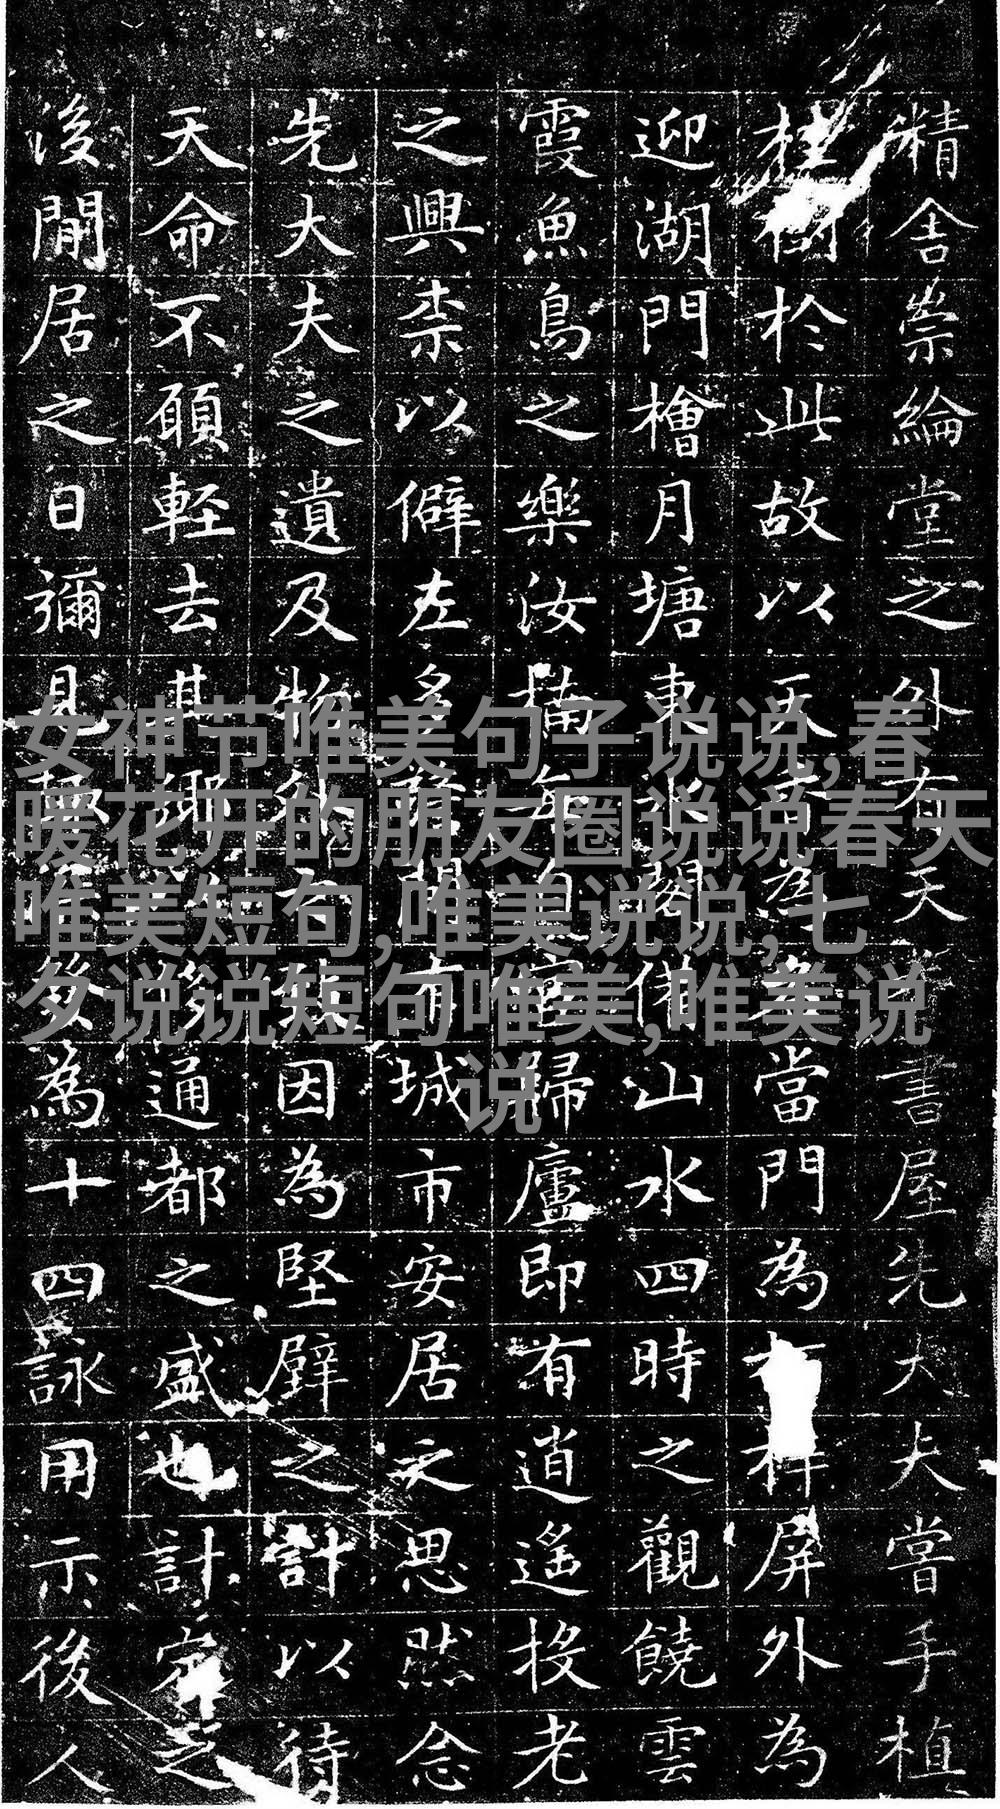 精舍崇綸堂之外有天書屋先大夫嘗手植
桂樹於此故以天為當門為屏外為
迎湖門檜月塘東水閣備山水四時之觀饒雲
霞魚鳥之樂汝楠每自歸廬即有逍遙投老
之興柰以僻左多間有城市安居之思然念
先大夫之遺及物外短因為堅壁之計以待
天命不願輕去其鄉移通都之盛也計定之
後閒居之日彌見多為十四詠用示後人
女神节唯美句子说说,春
暖花开的朋友圈说说春天
唯美短句,唯美说说,七
夕说说短句唯美,唯美说
说